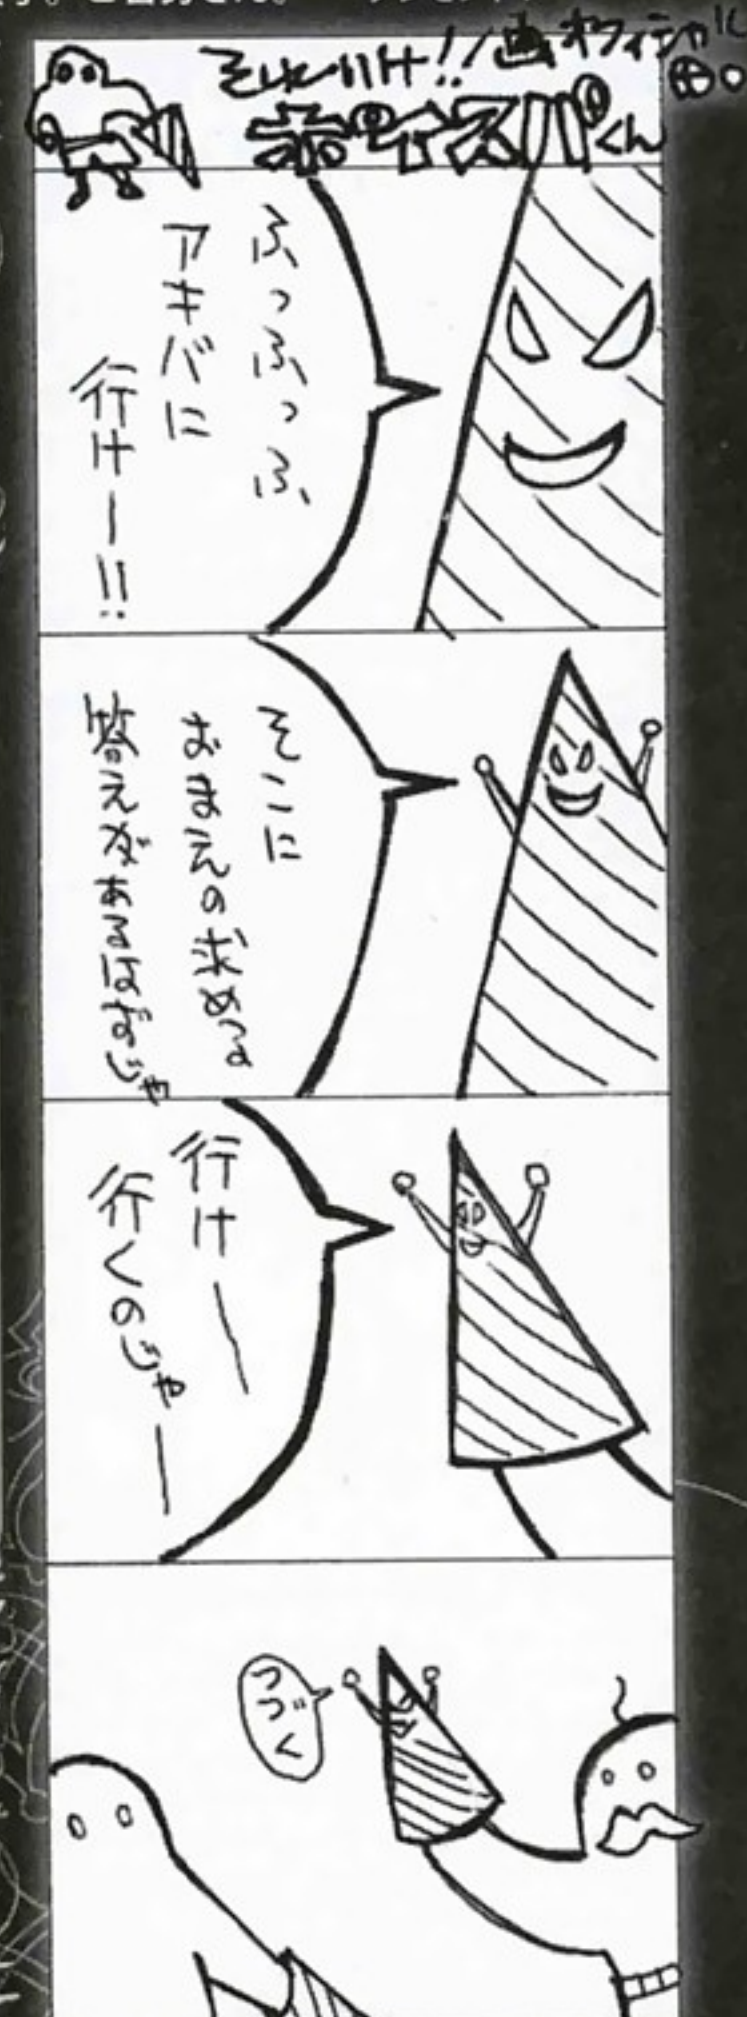 それいけ!!
ポイズパくん
画 オフィシャル
ふっふっふ
アキバに
行けー!!
そこに
おまえの求める
答えがあるはずじゃ
行けー
行くのじゃー
つづく